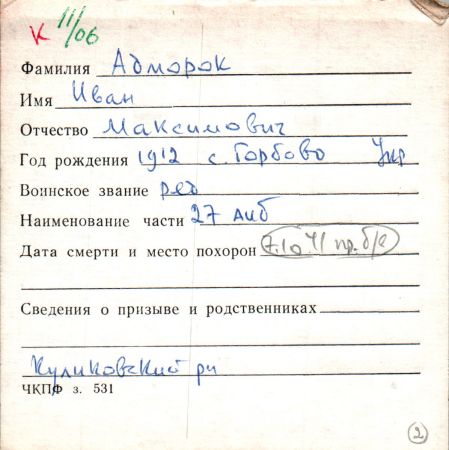 к 11/06
Фамилия Адморок
Имя Иван
Отчество Максимович
Год рождения 1912 с. Горбово Укр
Воинское звание ряд
Наименование части 27 АИБ
Дата смерти и место похорон 7.10.41 пр. б/в
Сведения о призыве и родственниках
Куликовский рн
ЧКПФ з. 531
2